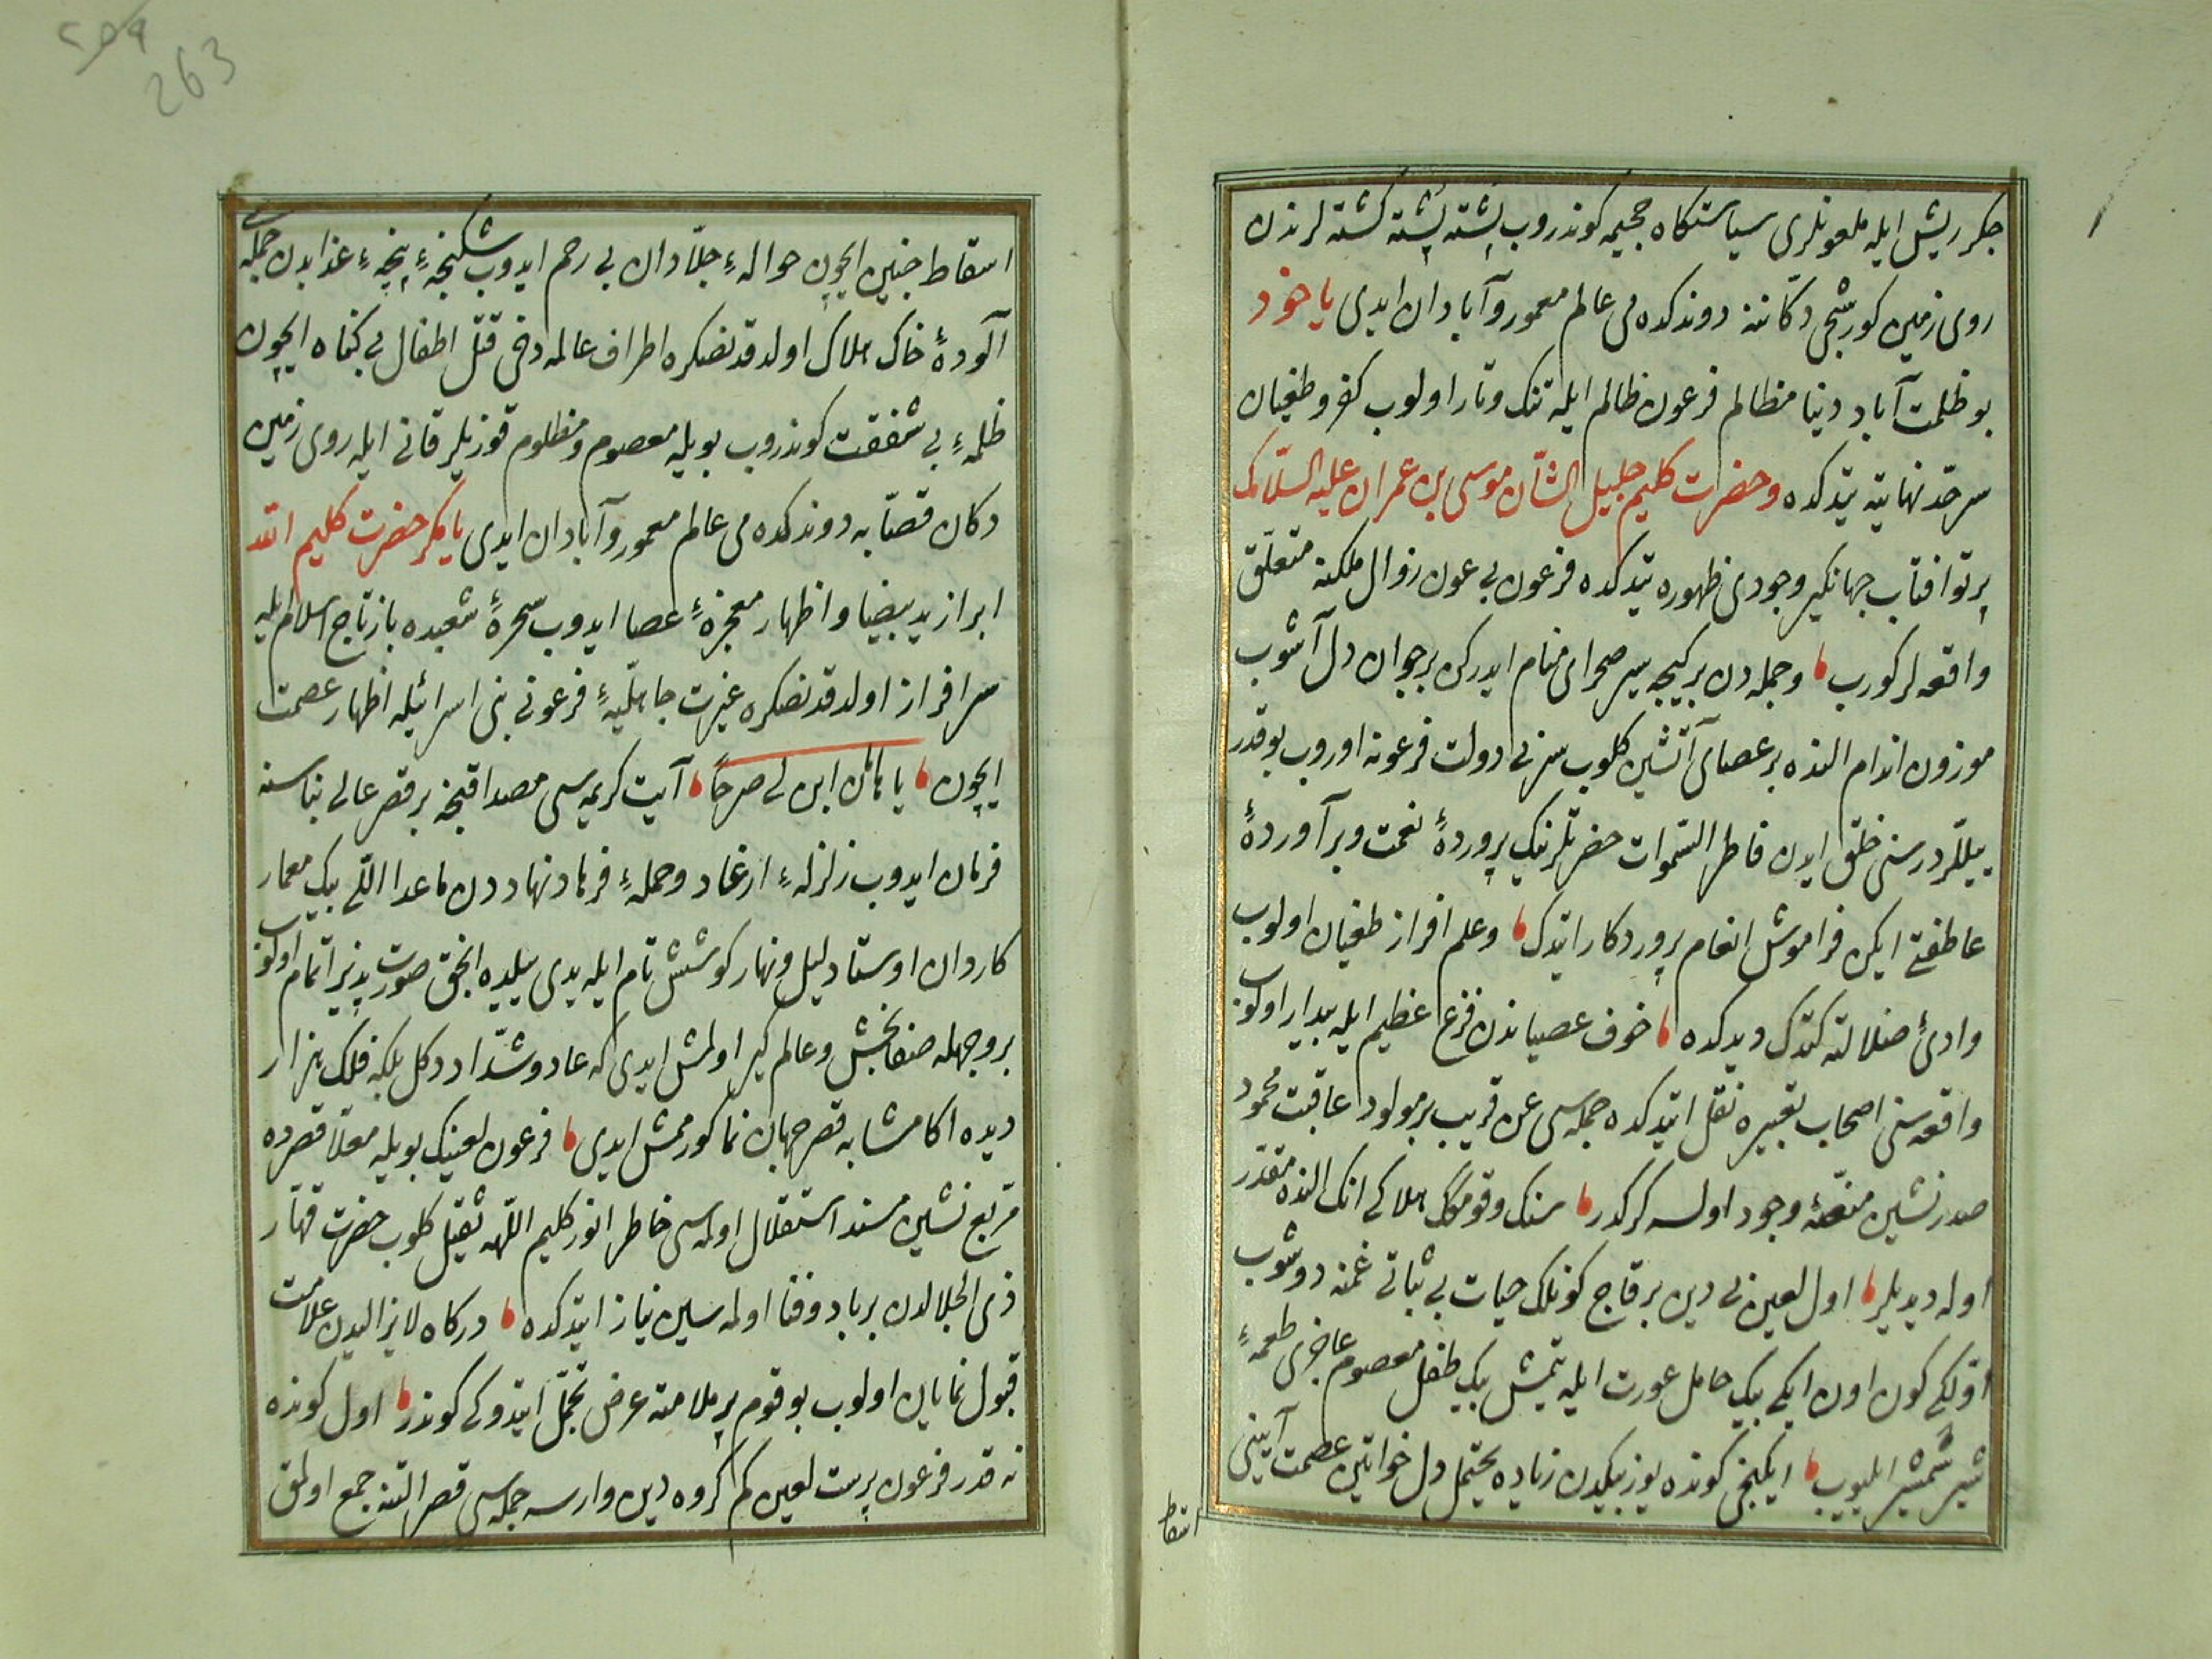 جكر ريش ايله ملعونلرى سياستكاه جحيمه كوندروب پشته پشته كشته لرندن
روى زمين كورشجى دكاننه دوندكده مى عالم معمور وآبادان ايدى ياخود
بو ظلمت آباد دنيا مظالم فرعون ظالم ايله تنك وتار اولوب كفر وطغيان
سرحد نهايته يتدكده وحضرت كليم جليل الشان موسى بن عمران عليه السلامك
پرتو افتاب جهانكير وجودى ظهوره يتدكده فرعون بى عون زوال ملكنه متعلق
واقعه لر كورب وجمله دن بر كيجه سير صحراى منام ايدركن بر جوان دل آشوب
موزون اندام النده بر عصاى آتشين كلوب سر بى دولت فرعونه اوروب بو قدر
ييللردر سنى خلق ايدن فاطر السموات حضرتلرينك پروردۀ نعمت وبرآوردۀ
عاطفتى ايكن فراموش انعام پروردكار ايتدك وعلم افراز طغيان اولوب
وادئ ضلالته كتدك ديدكده خوف عصياندن فزع عظيم ايله بيدار اولوب
واقعه سنى اصحاب تعبيره نقل ايتدكده جمله سى عن قريب بر مولود عاقبت محمود
صدر نشين منصۀ وجود اولسه كركدر سنك وقومكك هلاكى انك النده مقدر
اوله ديديلر اول لعين بى دين بر قاج كونلك حيات بى ثباتى غمنه دوشوب
اولكى كون اون ايكى بيك حامل عورت ايله يتمش بيك طفل معصوم عاجزى طعمۀ
شير شمشير ايليوب ايكنجى كونده يوز بيكدن زياده محتمل دل خواتين عصمت آيينى
اسقاط
اسقاط جنين ايچون حوالهء جلادان بى رحم ايدوب شكنجهء پنجهء عذابدن جمله سى
آلودۀ خاك هلاك اولدقدنصكره اطراف عالمه دخى قتل اطفال بى كناه ايچون
ظلمهء بى شفقت كوندروب بويله معصوم ومظلوم قوزيلر قانى ايله روى زمين
دكان قصابه دوندكده مى عالم معمور وآبادان ايدى يا مكر حضرت كليم الله
ابراز يد بيضا واظهار معجزهء عصا ايدوب سحرۀ شعبده باز تاج اسلام ايله
سرافراز اولدقدنصكره غيرت جاهليهء فرعونى بنى اسرائيله اظهار عصمت
ايچون يا هامان ابن لى صرحا آيت كريمه سى مصداقنجه بر قصر عالى بناسنه
فرمان ايدوب زلزلهء ارغاد وحملهء فرهاد نهاددن ماعدا اللى بيك معمار
كاردان اوستاد ليل ونهار كوشش تام ايله يدى ييلده انجق صورت پذير اتمام اولوب
بر وجهله صفابخش وعالم كير اولمش ايدى كه عاد وشداد دكل بلكه فلك هزار
ديده اكا مشابه قصر جهان نما كورممش ايدى فرعون لعينك بويله معلا قصرده
مربع نشين مسند استقلال اولمسى خاطر انور كليم اللهه ثقيل كلوب حضرت قهار
ذى الجلالدن برباد وفنا اولمه سين نياز ايتدكده دركاه لايزاليدن علامت
قبول نمايان اولوب بو قوم پر ملامته عرض تجمل ايتدوكى كوندر اول كونده
نه قدر فرعون پرست لعين كم كروه دين وارسه جمله سى قصر التنه جمع اولمق
263